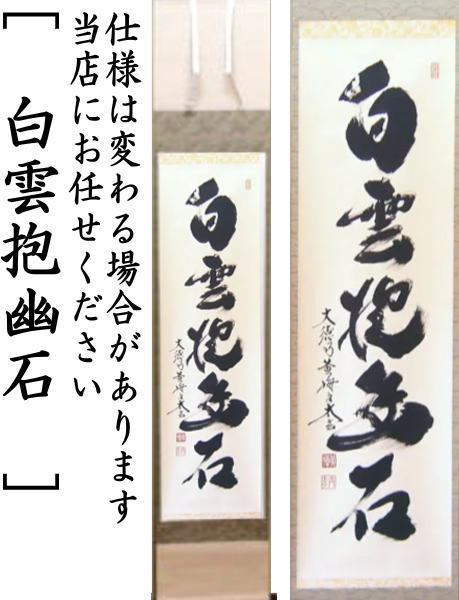 仕様は変わる場合があります
当店にお任せください
[白雲抱幽石]
白雲抱幽石
白雲抱幽石